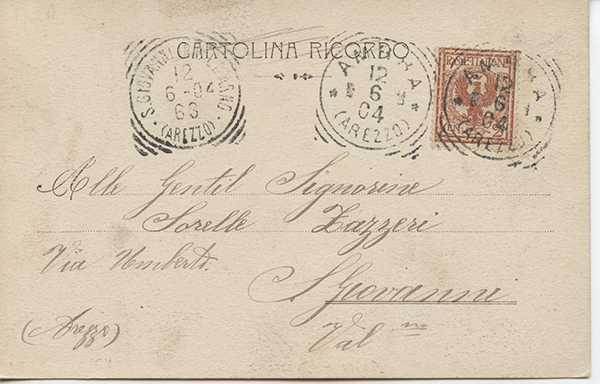 CARTOLINA RICORDO
S. GIOVANNI
12
6-04
(AREZZO)
12
6
04
(AREZZO)
POSTE ITALIANE
12
6
04
(AREZZO)
Alle Gentil Signorine
Sorelle Zazzeri
Via Umberto.
S Giovanni
Val no
(Arezzo)